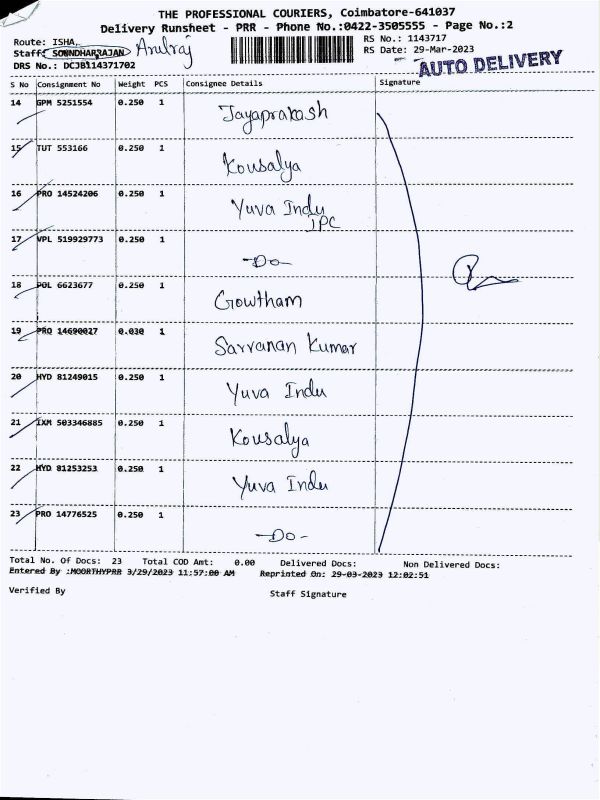 THE PROFESSIONAL COURIERS, Coimbatore-641037
Delivery Runsheet - PRR - Phone No.:0422-3505555 - Page No.:2
Route: ISHA,
Staff: SOUNDHARRAJAN Arulraj
DRS No.: DCJB114371702
RS No.: 1143717
RS Date: 29-Mar-2023
AUTO DELIVERY
S No Consignment No Weight PCS Consignee Details Signature
14 GPM 5251554 0.250 1 Jayaprakash
15 TUT 553166 0.250 1 Kousalya
16 PRO 14524206 0.250 1 Yuva Indu
IPC
17 VPL 519929773 0.250 1 -Do-
18 POL 6623677 0.250 1 Gowtham
19 PRO 14690027 0.030 1 Sarvanan Kumar
20 HYD 81249015 0.250 1 Yuva Indu
21 IXM 503346885 0.250 1 Kousalya
22 HYD 81253253 0.250 1 Yuva Indu
23 PRO 14776525 0.250 1 -Do-
Total No. Of Docs: 23 Total COD Amt: 0.00 Delivered Docs: Non Delivered Docs:
Entered By :MOORTHYPRR 3/29/2023 11:57:00 AM Reprinted On: 29-03-2023 12:02:51
Verified By Staff Signature